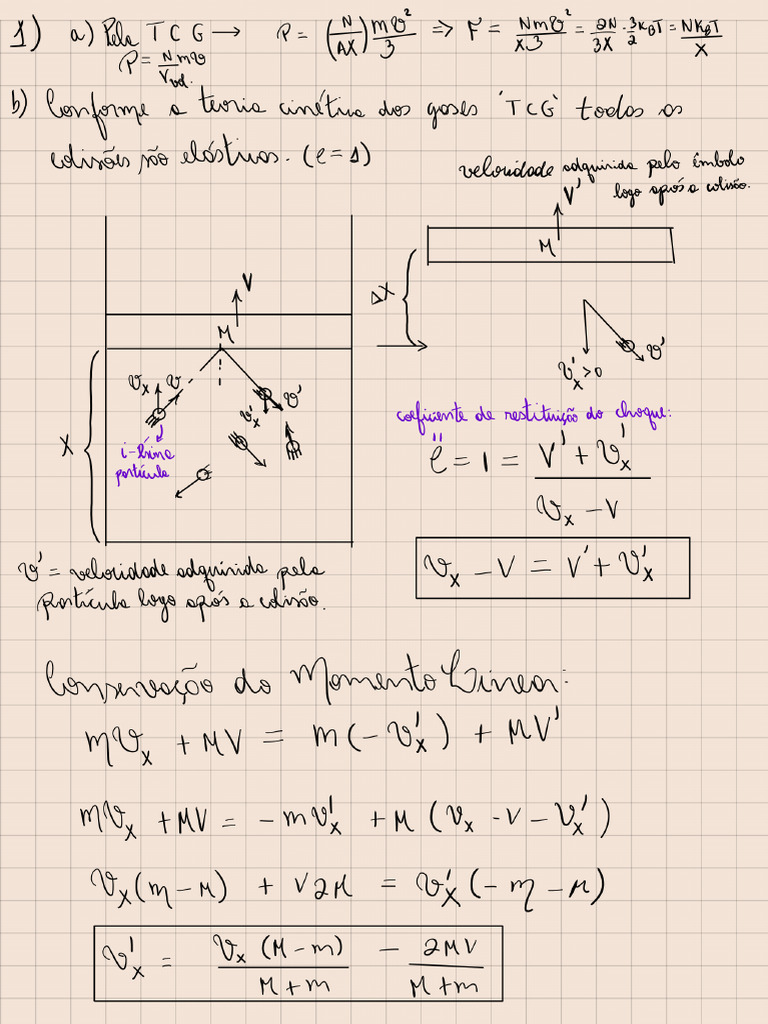 1) a) Pela TCG → P = (N/AX) mv²/3 => F = Nmv²/X3 = 2N/3X · 3/2 k_BT = Nk_BT/X
P = N mv/Vol.
b) Conforme a teoria cinética dos gases 'TCG' todas as
colisões são elásticas. (e = 1)
velocidade adquirida pelo êmbolo
logo após a colisão.
V'
M
V
M
ΔX
X
v_x v
v'_x v'
i-ésima
partícula
v'_x > 0 v'
coeficiente de restituição do choque:
e = 1 = (V' + v'_x)/(v_x - V)
v_x - V = V' + v'_x
v' = velocidade adquirida pela
partícula logo após a colisão.
Conservação do Momento Linear:
mv_x + MV = m(-v'_x) + MV'
mv_x + MV = -mv'_x + M (v_x - V - v'_x)
v_x(m - M) + V2M = v'_x(-m - M)
v'_x = v_x (M - m)/(M + m) - 2MV/(M + m)